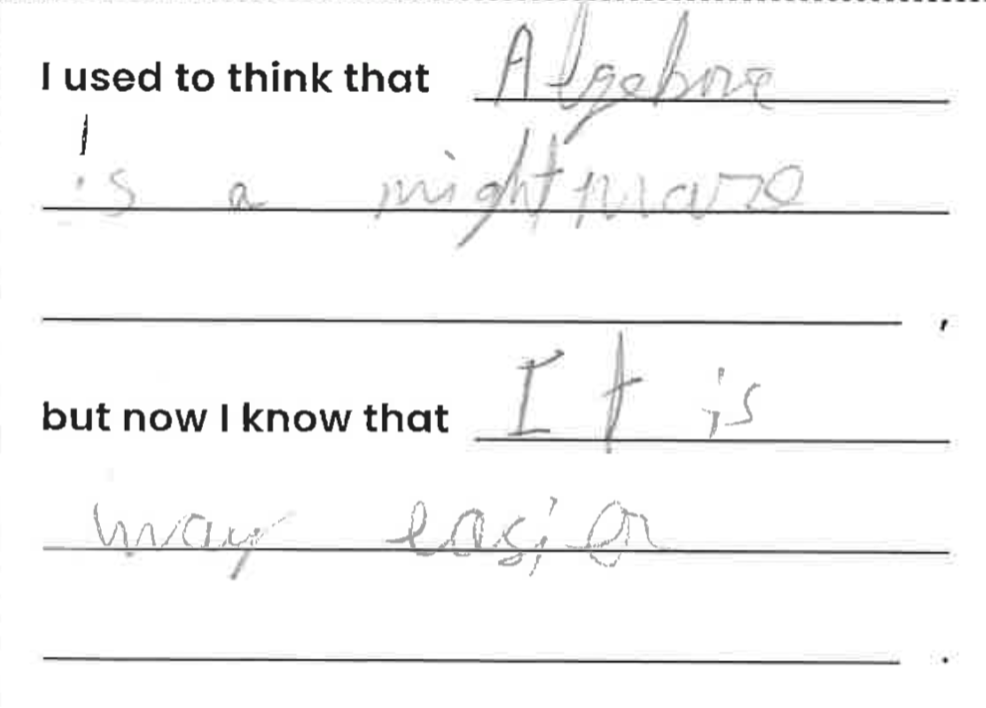 I used to think that Algebra
is a mightmare
,
but now I know that It is
way easier
.